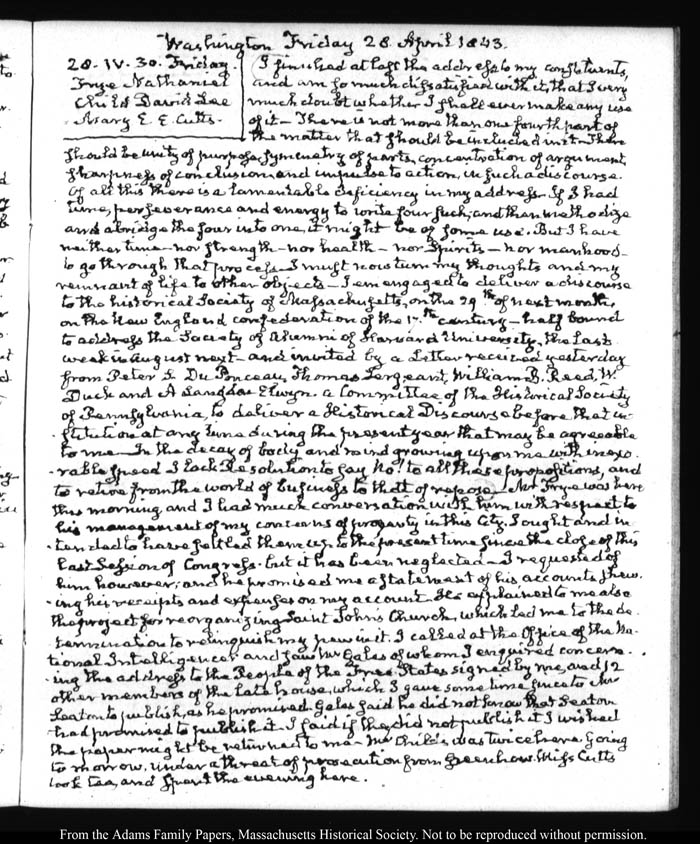 Washington Friday 28 April 1843.
28. IV. 30. Friday.
Frye Nathaniel
Child David Lee
Mary E. E. Cutts.
I finished at last the address to my constituents,
and am so much dissatisfied with it, that I very
much doubt whether I shall ever make any use
of it — There is not more than one fourth part of
the matter that should be included in it — There
should be unity of purpose, symmetry of parts, concentration of argument,
sharpness of conclusion, and impulse to action, in such a discourse.
Of all this there is a lamentable deficiency in my address. If I had
time, perseverance and energy to write four such, and then methodize
and abridge the four into one, it might be of some use. But I have
neither time — nor strength — nor health — nor Spirits — nor manhood —
to go through that process. I must now turn my thoughts and my
remnant of life to other objects — I am engaged to deliver a discourse
to the historical Society of Massachusetts, on the 29th of next month,
on the New England confederation of the 17th century — half bound
to address the Society of Alumni of Harvard University, the last
week in August next — and invited by a Letter received yesterday
from Peter S. Du Ponceau, Thomas Sergeant, William B. Reed, W.
Duck and A Langdon Elwyn. a Committee of the Historical Society
of Pennsylvania, to deliver a Historical Discourse before that in-
stitution at any time during the present year that may be agreeable
to me — In the decay of body and mind growing upon me with inexo-
rable speed I lack Resolution to say No! to all these propositions, and
to retire from the world of business to that of repose — Mr Frye was here
this morning and I had much conversation with him with respect to
his management of my concerns of property in this City. I ought and in-
tended to have settled them up to the present time since the close of the
last Session of Congress. but it has been neglected — I requested of
him however; and he promised me a statement of his accounts, shew-
ing his receipts and expenses on my account. He explained to me also
the project for reorganizing Saint John's Church, which led me to the de-
termination to relinquish my pew in it. I called at the Office of the Na-
tional Intelligencer and saw Mr Gales of whom I enquired concern-
ing the address to the People of the Free States signed by me, and 12
other members of the late house, which I gave some time since to Mr
Seaton to publish, as he promised. Gales said he did not know that Seaton
had promised to publish it — I said if they did not publish it I wished
the paper might be returned to me — Mr Child was twice here. Going
to morrow. under a threat of prosecution from Greenhow. Miss Cutts
took tea, and spent the evening here.
From the Adams Family Papers, Massachusetts Historical Society. Not to be reproduced without permission.